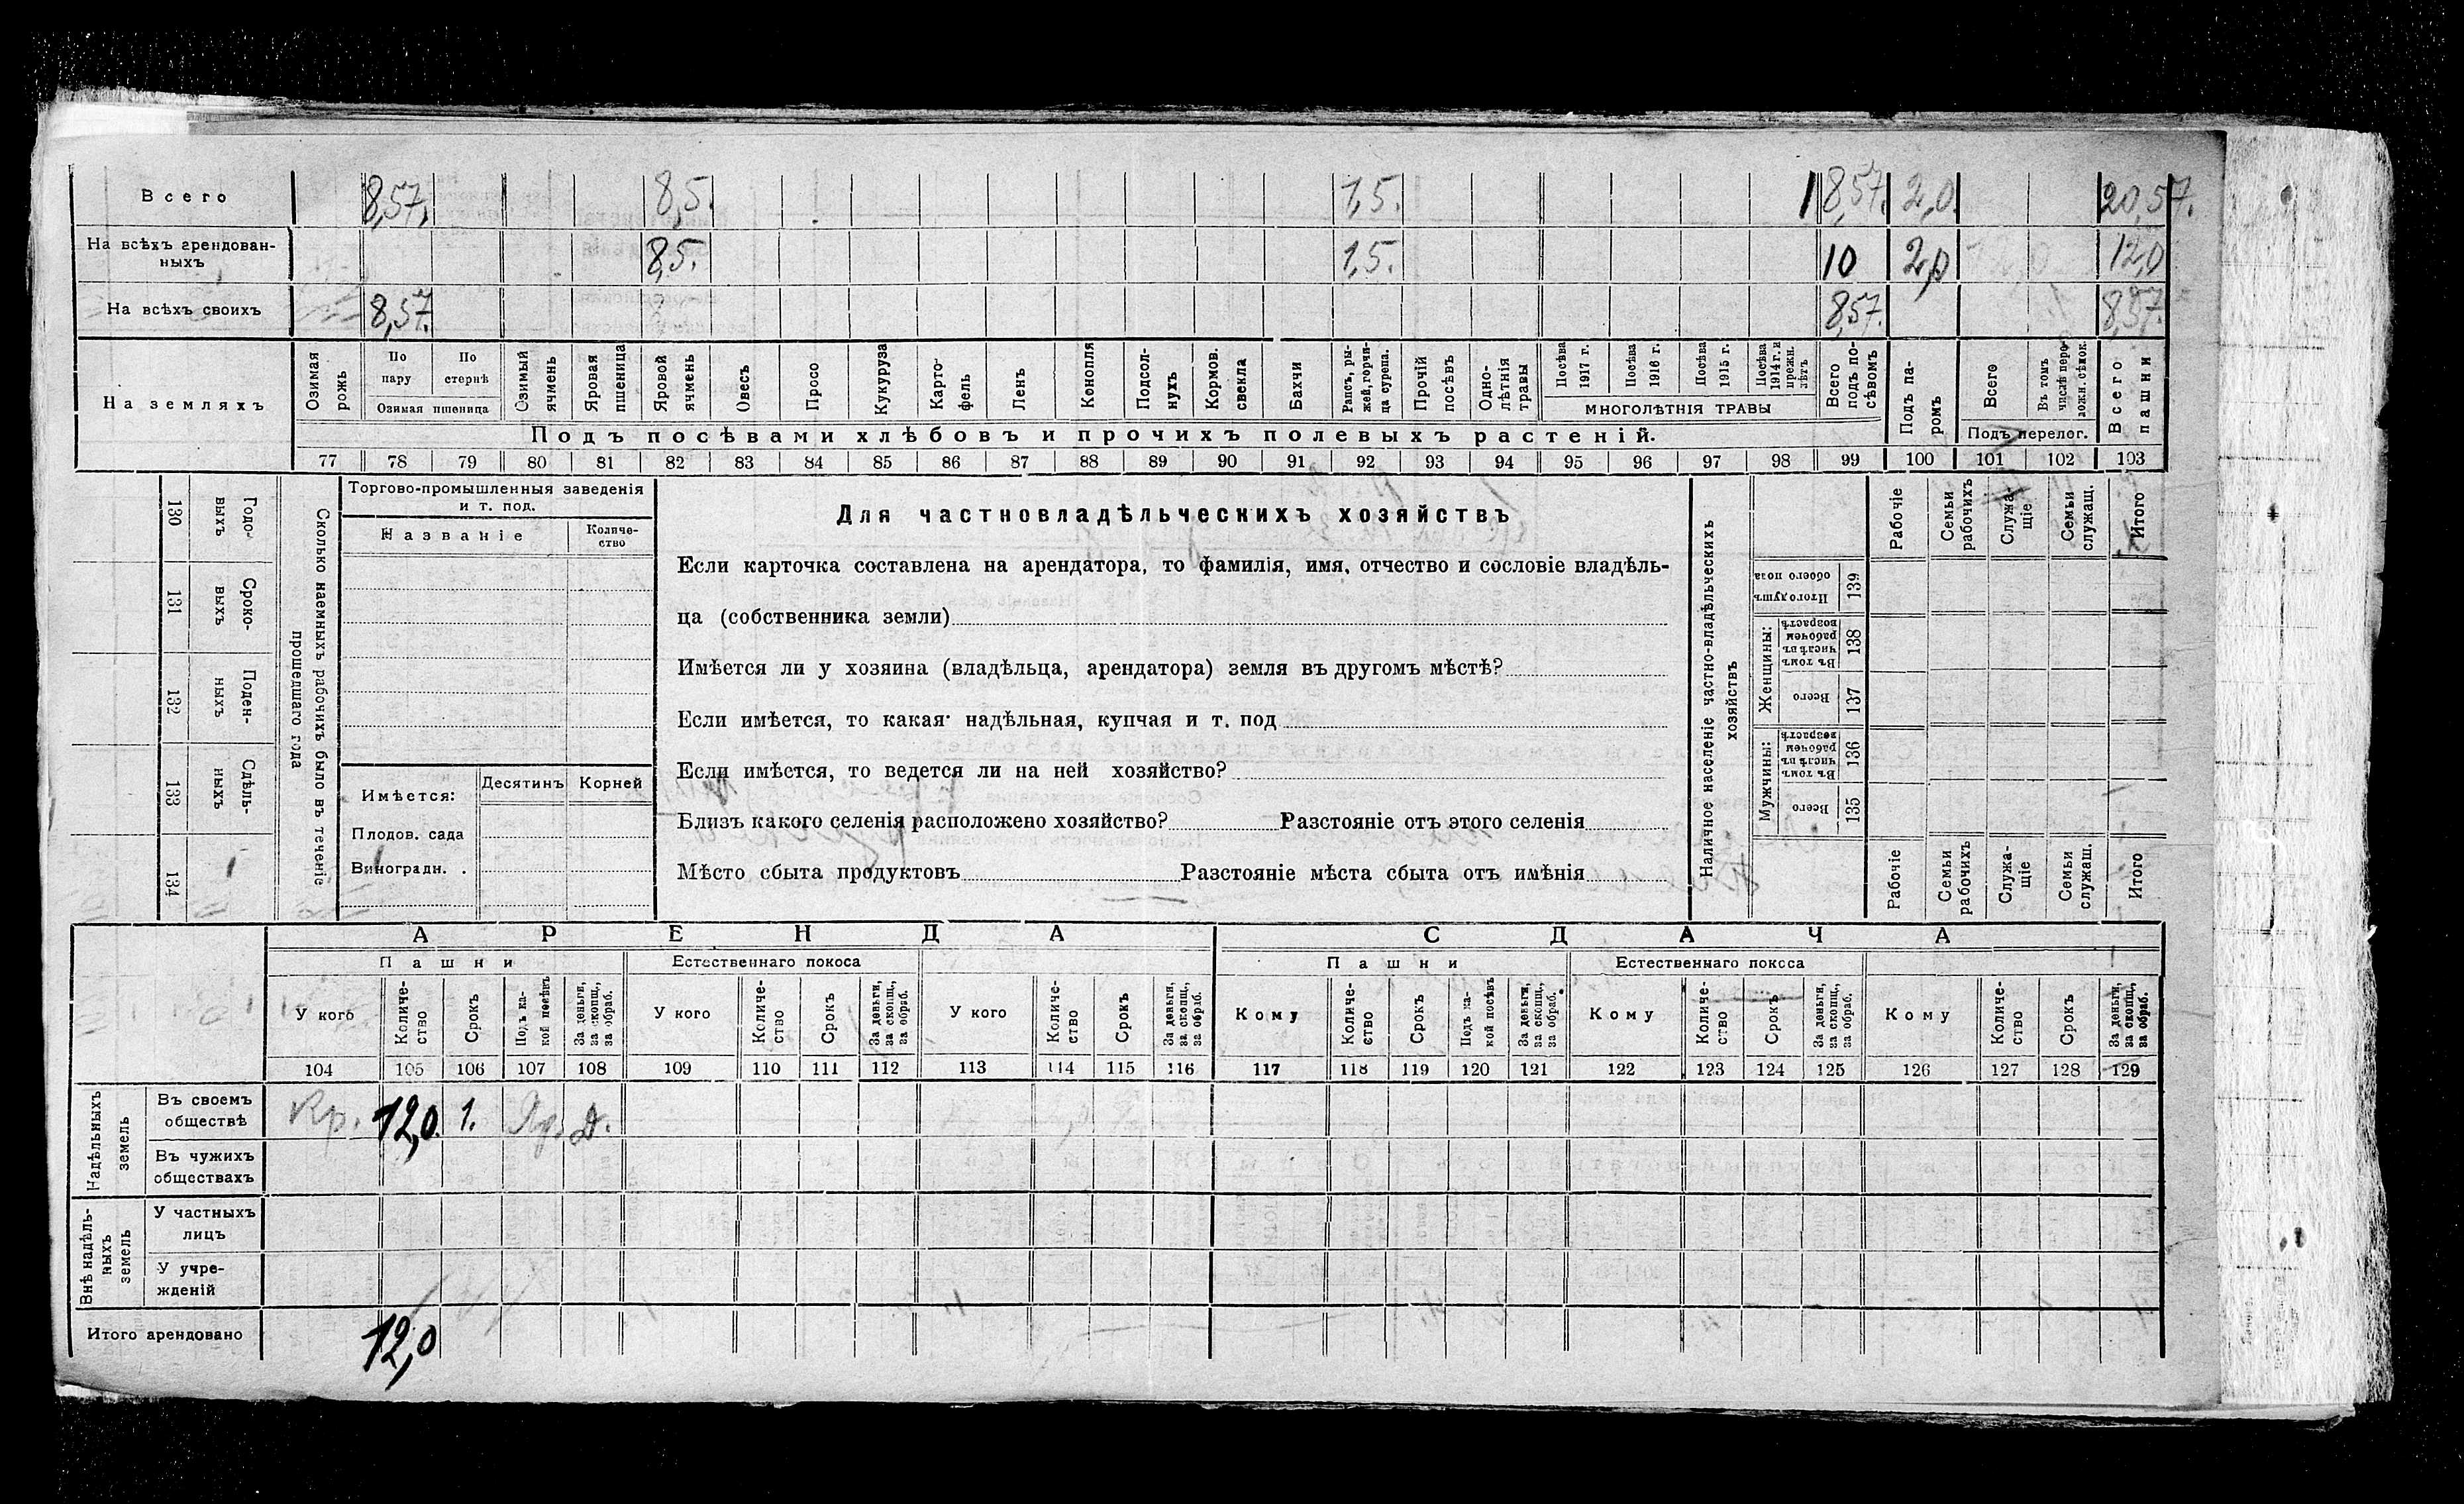 Всего 8,57. 8,5. 1,5. 18,57. 2,0. 20,57.
На всѣхъ арендован-
ныхъ 8,5. 1,5. 10 2,0 12,0
На всѣхъ своихъ 8,57. 8,57. 8,57.
На земляхъ
Озимая рожь
По пару
По стернѣ
Озимая пшеница
Озимый ячмень
Яровая пшеница
Яровой ячмень
Овесъ
Просо
Кукуруза
Карто-
фель
Ленъ
Конопля
Подсол-
нухъ
Кормов. свекла
Бахчи
Рапсъ, ры-
жей, горчи-
ца сурепа.
Прочій посѣвъ
Одно-
лѣтнія травы
Посѣва 1917 г.
Посѣва 1916 г.
Посѣва 1915 г.
Посѣва 1914 г. и прежн. лѣтъ
МНОГОЛѢТНІЯ ТРАВЫ
Всего подъ по-
сѣвомъ
Подъ па-
ромъ
Всего
Въ томъ числѣ перело-
жн. сѣнок.
Подъ перелог.
Всего пашни
Подъ посѣвами хлѣбовъ и прочихъ полевыхъ растеній.
77 78 79 80 81 82 83 84 85 86 87 88 89 90 91 92 93 94 95 96 97 98 99 100 101 102 103
130 Годо-
выхъ
131 Сроко-
выхъ
132 Поден-
ныхъ
133 Сдѣль-
ныхъ
134
Сколько наемныхъ рабочихъ было въ теченіе
прошедшаго года
Торгово-промышленныя заведенія
и т. под.
Названіе
Количе-
ство
Имѣется:
Десятинъ
Корней
Плодов. сада
Виноградн.
Для частновладѣльческихъ хозяйствъ
Если карточка составлена на арендатора, то фамилія, имя, отчество и сословіе владѣль-
ца (собственника земли)
Имѣется ли у хозяина (владѣльца, арендатора) земля въ другомъ мѣстѣ?
Если имѣется, то какая: надѣльная, купчая и т. под
Если имѣется, то ведется ли на ней хозяйство?
Близъ какого селенія расположено хозяйство? Разстояніе отъ этого селенія
Мѣсто сбыта продуктовъ Разстояніе мѣста сбыта отъ имѣнія
Наличное населеніе частно-владѣльческихъ
хозяйствъ
Рабочіе
Семьи рабочихъ
Служа-
щіе
Семьи служащ.
Итого
Итого душъ обоего пола 139
Женщины:
Въ томъ числѣ въ рабочем возрастѣ 138
Всего 137
Мужчины:
Въ томъ числѣ въ рабочем возрастѣ 136
Всего 135
Рабочіе
Семьи рабочихъ
Служа-
щіе
Семьи служащ.
Итого
АРЕНДА СДАЧА
Пашни Естественнаго покоса Пашни Естественнаго покоса
У кого
Количе-
ство
Срокъ
Подъ ка-
кой посѣвъ
За деньги, за скопщ., за обраб.
У кого
Количе-
ство
Срокъ
За деньги, за скопщ., за обраб.
У кого
Количе-
ство
Срокъ
За деньги, за скопщ., за обраб.
Кому
Количе-
ство
Срокъ
Подъ ка-
кой посѣвъ
За деньги, за скопщ., за обраб.
Кому
Количе-
ство
Срокъ
За деньги, за скопщ., за обраб.
Кому
Количе-
ство
Срокъ
За деньги, за скопщ., за обраб.
104 105 106 107 108 109 110 111 112 113 114 115 116 117 118 119 120 121 122 123 124 125 126 127 128 129
Надѣльныхъ земель
Въ своемъ
обществѣ Кр. 12,0. 1. Яр. Д.
Въ чужихъ
обществахъ
Внѣ надѣль-
ныхъ земель
У частныхъ
лицъ
У учре-
жденій
Итого арендовано 12,0